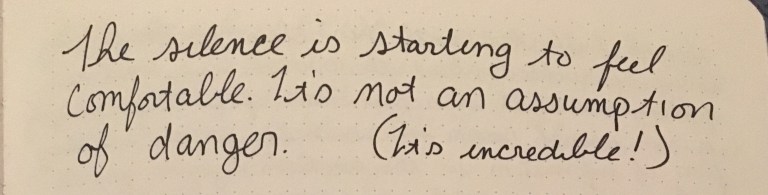 The silence is starting to feel
comfortable. It's not an assumption
of danger. (It's incredible!)